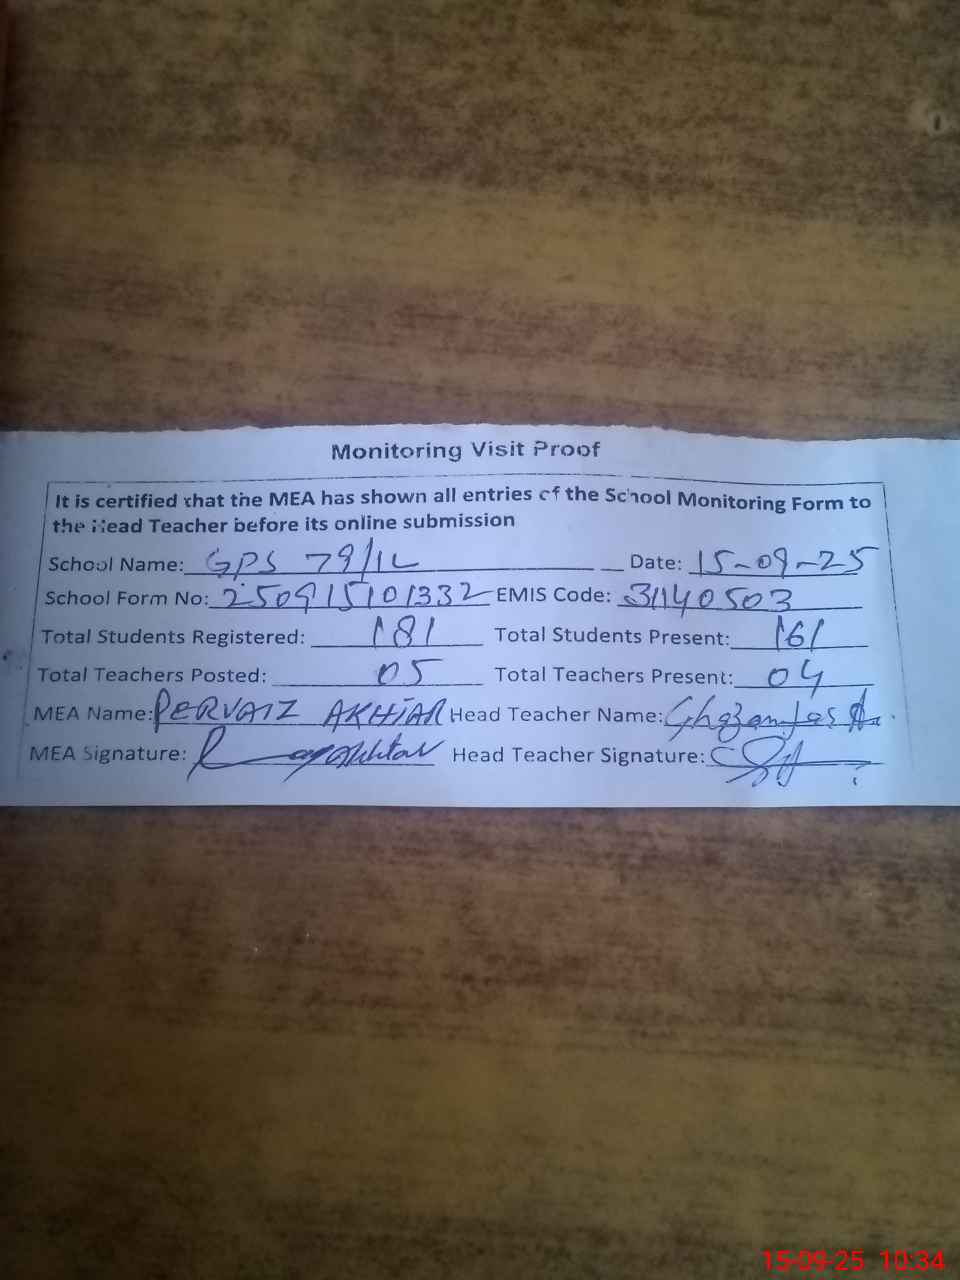 Monitoring Visit Proof
It is certified that the MEA has shown all entries of the School Monitoring Form to
the Head Teacher before its online submission
School Name: GPS 79/1L Date: 15-09-25
School Form No: 250915101332 EMIS Code: 31140503
Total Students Registered: 181 Total Students Present: 161
Total Teachers Posted: 05 Total Teachers Present: 04
MEA Name: PERVAIZ AKHTAR Head Teacher Name:
MEA Signature: Head Teacher Signature:
15-09-25 10:34